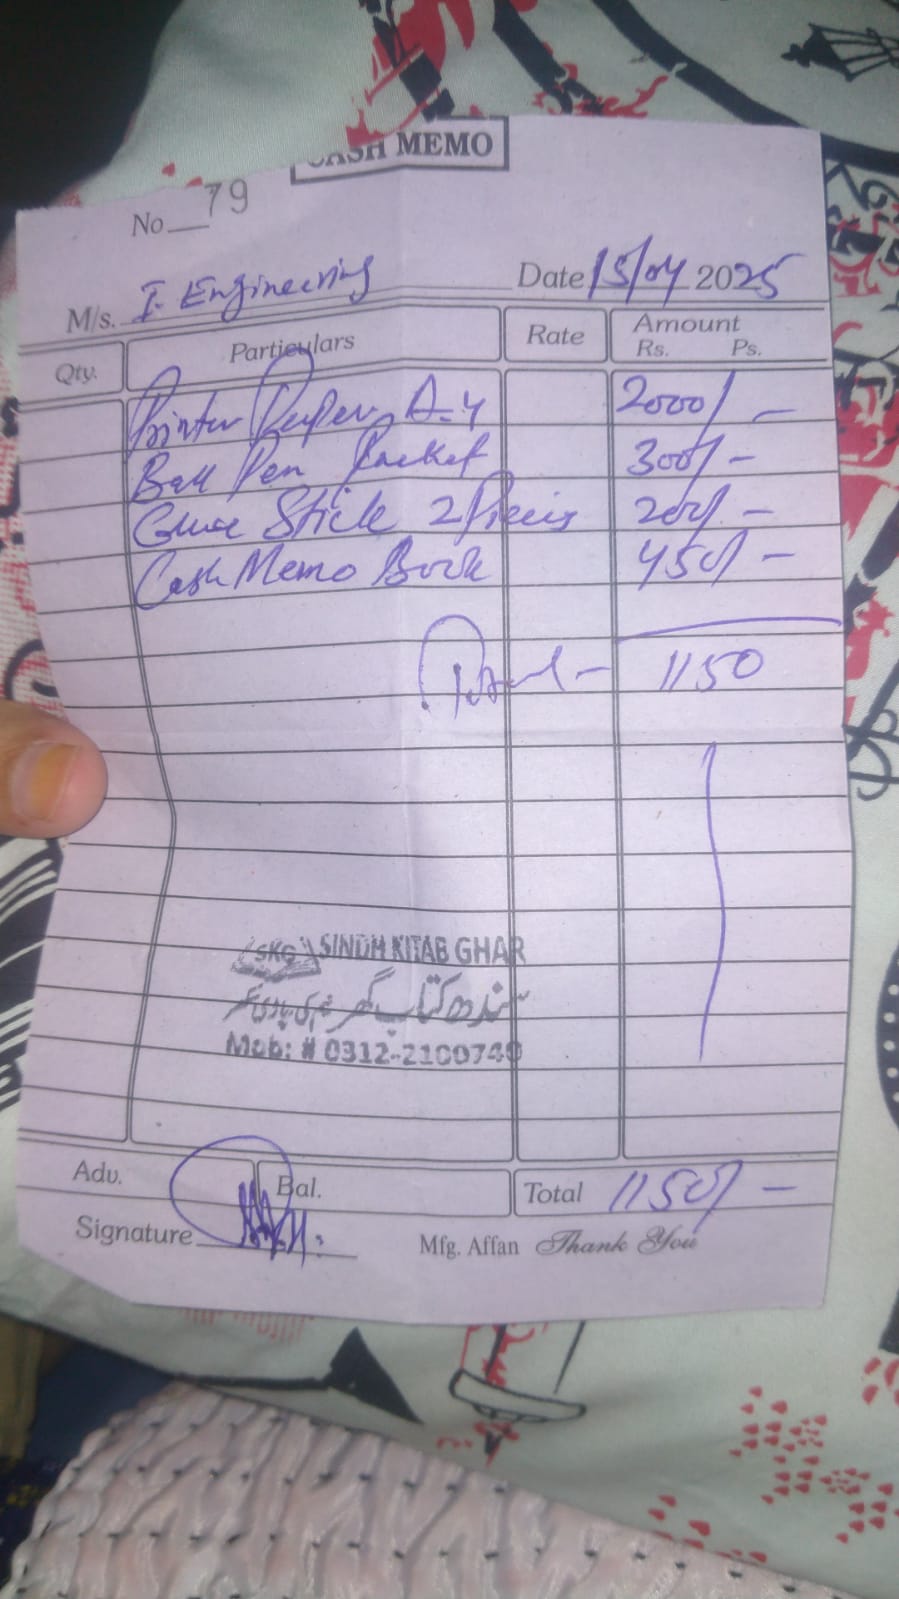 CASH MEMO
No 79
M/s. I. Engineering Date 15/04 2025
Qty. Particulars Rate Amount
Rs. Ps.
Printer Paper A-4 2000/-
Ball Pen Packet 300/-
Glue Stick 2 Pieces 200/-
Cash Memo Book 450/-
Total - 1150
SKG SINDH KITAB GHAR
سندھ کتاب گھر
Mob: # 0312-2100749
Adv. Bal. Total 1150/-
Signature Mfg. Affan Thank You